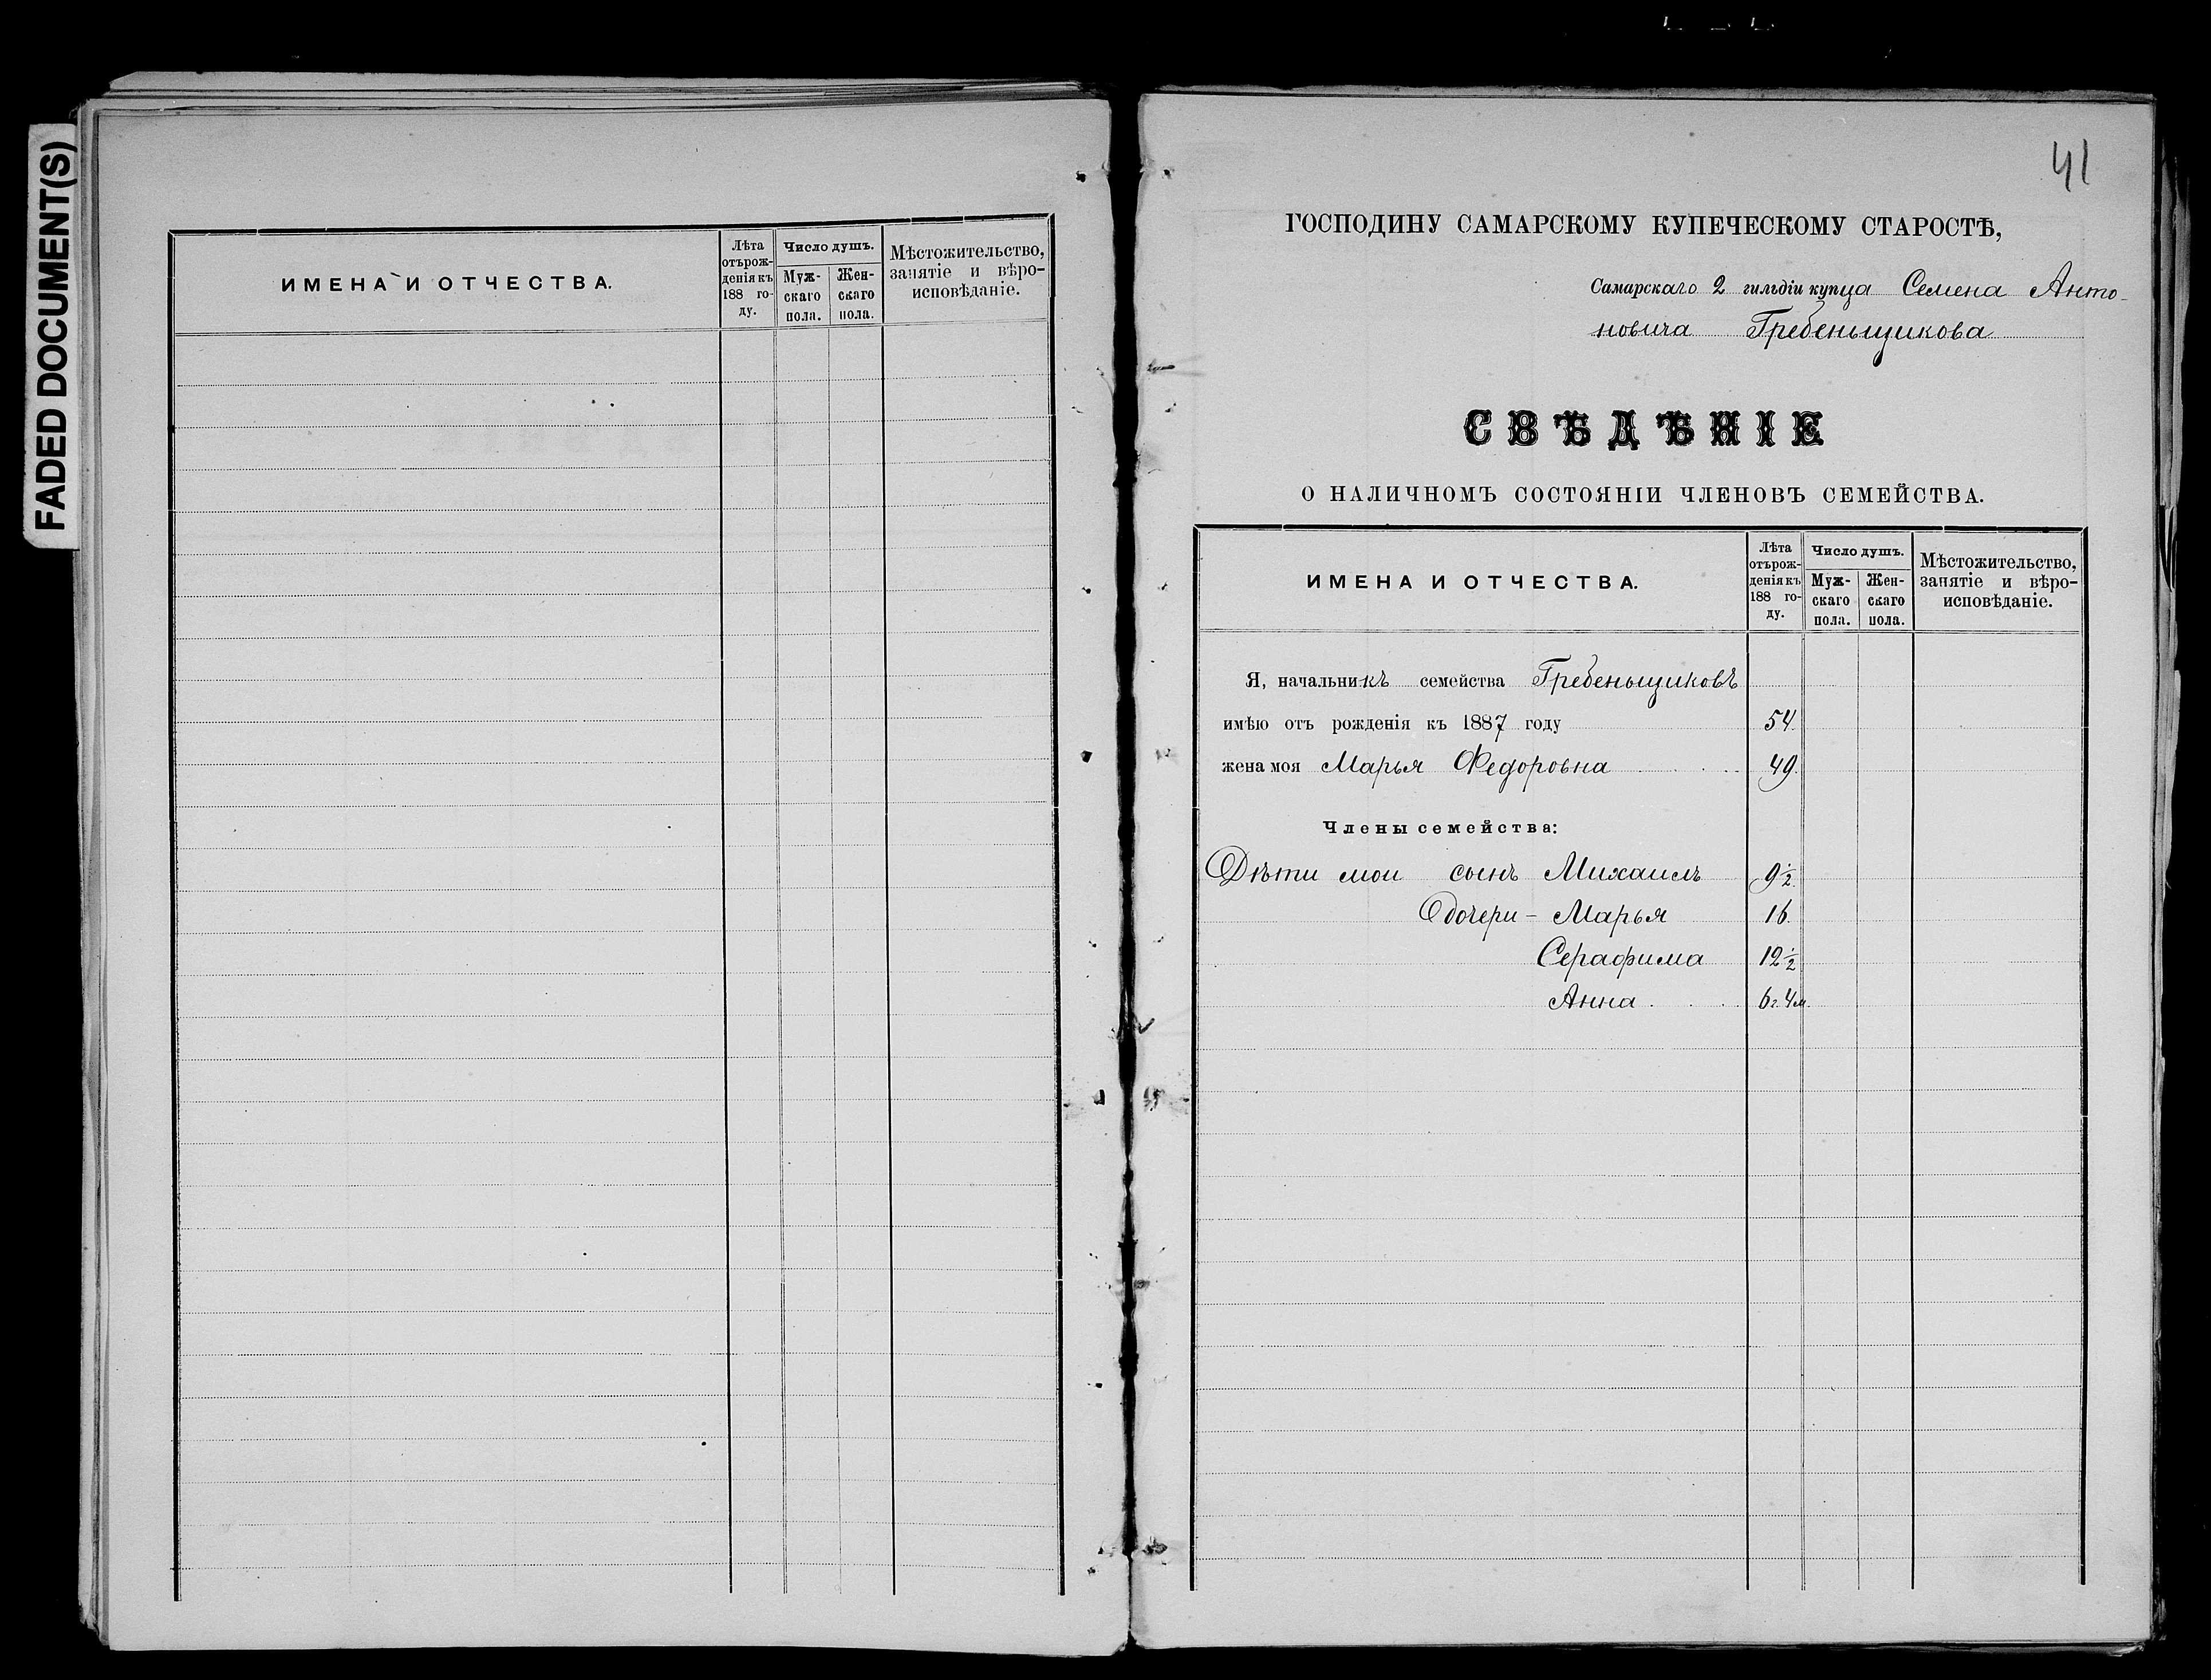 FADED DOCUMENT(S)
ИМЕНА И ОТЧЕСТВА.
Лѣта
отърож-
денія къ
188 го-
ду.
Число душъ.
Муж-
скаго
пола.
Жен-
скаго
пола.
Мѣстожительство,
занятіе и вѣро-
исповѣданіе.
41
ГОСПОДИНУ САМАРСКОМУ КУПЕЧЕСКОМУ СТАРОСТѢ,
Самарскаго 2 гильдіи купца Семена Анто-
новича Гребеньщикова
СВѢДѢНІЕ
О НАЛИЧНОМЪ СОСТОЯНІИ ЧЛЕНОВЪ СЕМЕЙСТВА.
ИМЕНА И ОТЧЕСТВА.
Лѣта
отърож-
денія къ
188 го-
ду.
Число душъ.
Муж-
скаго
пола.
Жен-
скаго
пола.
Мѣстожительство,
занятіе и вѣро-
исповѣданіе.
Я, начальникъ семейства Гребеньщиковъ
имѣю отъ рожденія къ 1887 году 54.
жена моя Марья Федоровна 49.
Члены семейства:
Дѣти мои сынъ Михаилъ 9 1/2.
Дочери - Марья 16.
Серафима 12 1/2
Анна 6 г. 4 м.